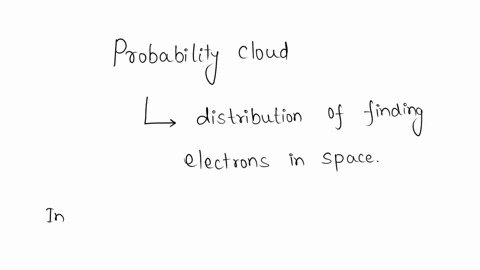 Probability cloud
distribution of finding
electrons in space.
In